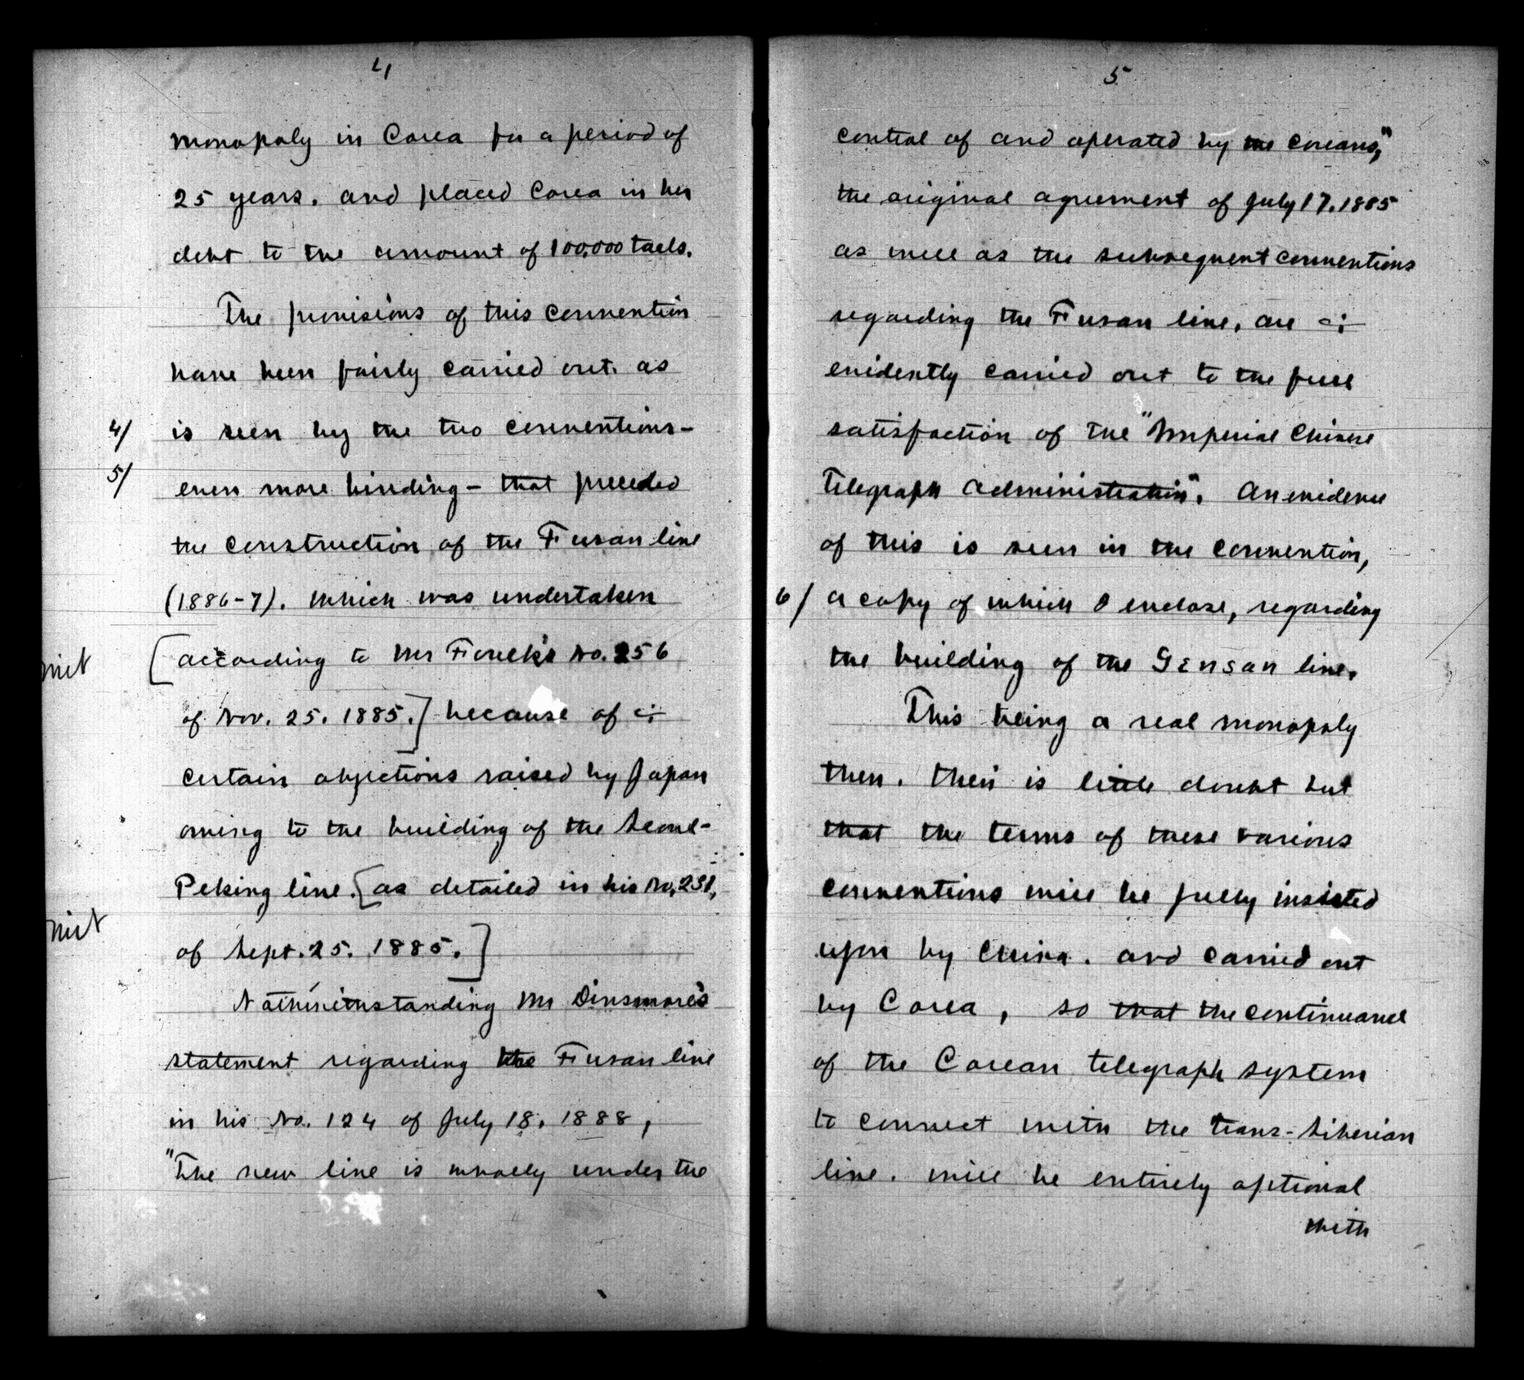 4
monopoly in Corea for a period of
25 years, and placed Corea in her
debt to the amount of 100,000 taels.
The provisions of this convention
have been fairly carried out, as
4/ is seen by the two conventions-
5/ even more binding - that preceded
the construction of the Fusan line
(1886-7), which was undertaken
[according to Mr Foulk's No. 256
of Nov. 25. 1885.] because of
certain objections raised by Japan
owing to the building of the Seoul-
Peking line. [as detailed in his No. 231,
of Sept. 25. 1885.]
Nothwithstanding Mr Dinsmore's
statement regarding the Fusan line
in his No. 124 of July 18, 1888,
"The new line is wholly under the
5
control of and operated by the Coreans,"
the original agreement of July 17. 1885
as well as the subsequent conventions
regarding the Fusan line, are
evidently carried out to the full
satisfaction of the "Imperial Chinese
Telegraph Administration". An evidence
of this is seen in the convention,
6/ a copy of which I enclose, regarding
the building of the Gensan line.
This being a real monopoly
then, their is little doubt but
that the terms of these various
conventions will be fully insisted
upon by China, and carried out
by Corea, so that the continuance
of the Corean telegraph system
to connect with the trans-Siberian
line, will be entirely optional
with